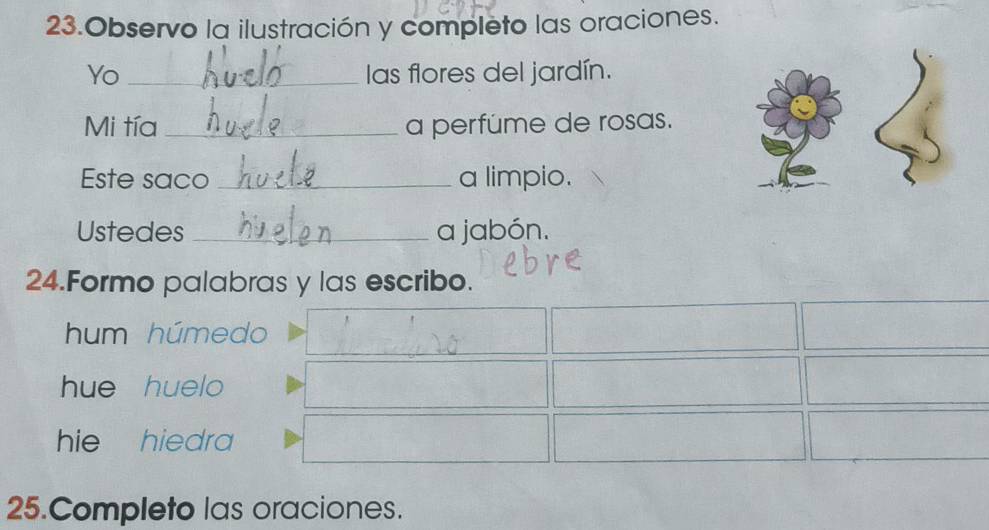 23.Observo la ilustración y completo las oraciones.
Yo huelo las flores del jardín.
Mi tía huele a perfúme de rosas.
Este saco huele a limpio.
Ustedes huelen a jabón.
Debre
24.Formo palabras y las escribo.
hum húmedo
hue huelo
hie hiedra
25.Completo las oraciones.